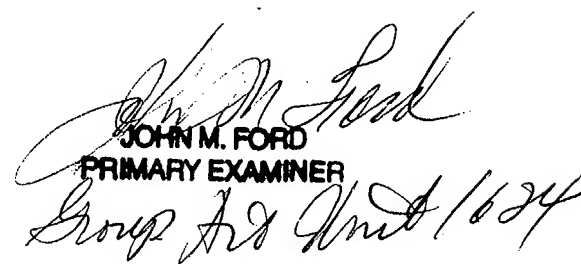 John M Ford
JOHN M. FORD
PRIMARY EXAMINER
Group Art Unit 1624